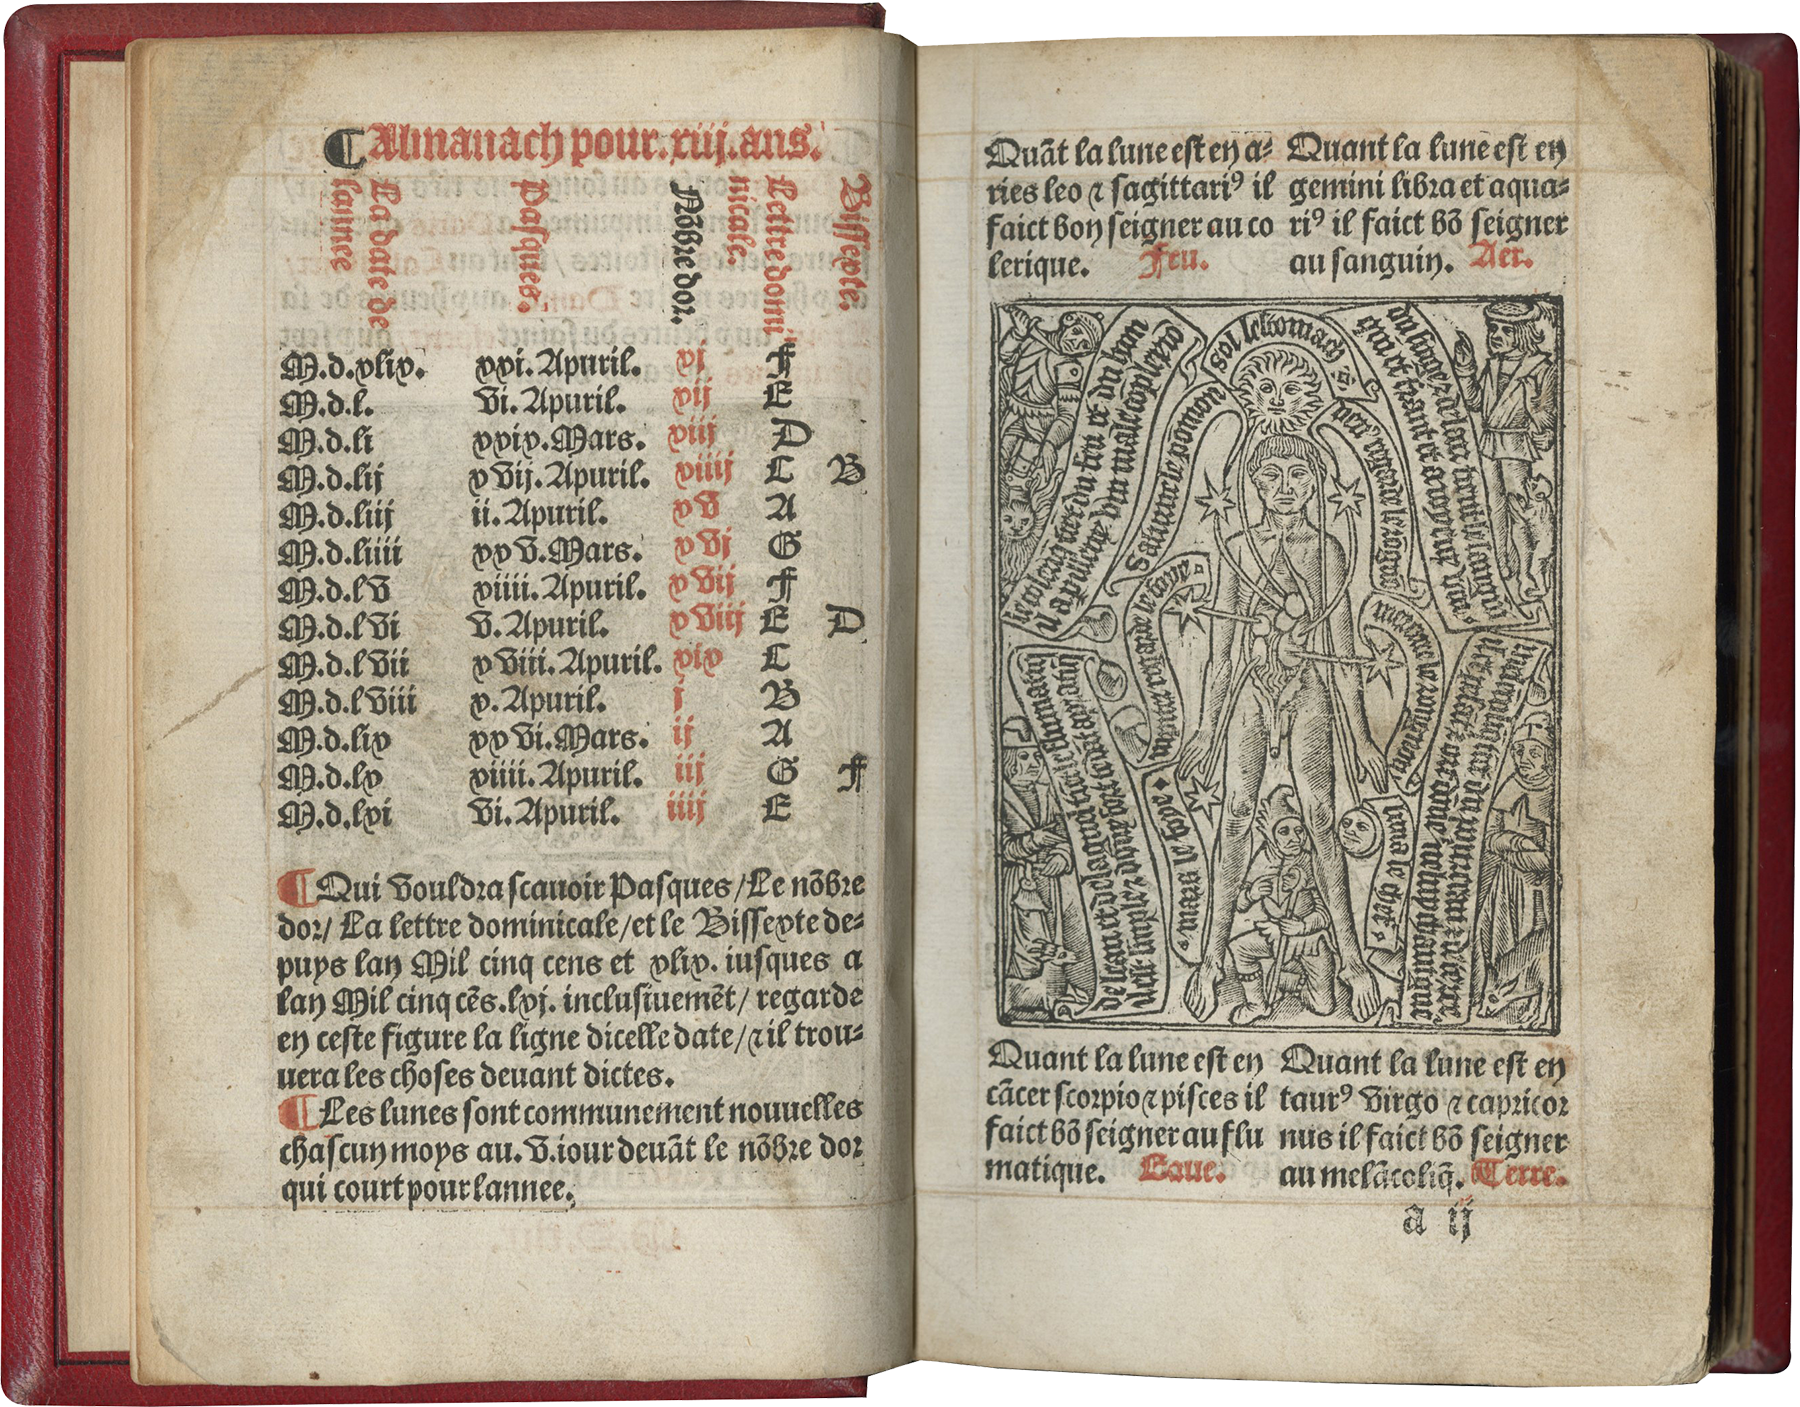 Almanach pour.xiij.ans.
La date de
lannee
Pasques.
Nõbre dor.
Lettre domi
nicale.
Bissexte.
M.d.xlix. xxi. Apuril. xj F
M.d.l. vi. Apuril. xij E
M.d.li xxix. Mars. xiij D
M.d.lij xvij. Apuril. xiiij C B
M.d.liij ii. Apuril. xv A
M.d.liiii xxv. Mars. xvj G
M.d.lv xiiii. Apuril. xvij F
M.d.lvi v. Apuril. xviij E D
M.d.lvii xviii. Apuril. xix C
M.d.lviii x. Apuril. j B
M.d.lix xxvi. Mars. ij A
M.d.lx xiiii. Apuril. iij G F
M.d.lxi vi. Apuril. iiij E
Qui vouldra scauoir Pasques/Le nõbre
dor/ La lettre dominicale/et le Bissexte de-
puys lan Mil cinq cens et xlix. iusques a
lan Mil cinq cẽs.lxj. inclusiuemẽt/ regarde
en ceste figure la ligne dicelle date/⁊ il trou-
uera les choses deuant dictes.
Les lunes sont communement nouuelles
chascun moys au. v.iour deuãt le nõbre dor
qui court pour lannee.
Quãt la lune est en a-
ries leo ⁊ sagittariꝰ il
faict bon seigner au co
lerique. Feu.
Quant la lune est en
gemini libra et aqua-
riꝰ il faict bõ seigner
au sanguin. Aer.
sol lestomach
Saturne le pomon
Quant la lune est en
cãcer scorpio ⁊ pisces il
faict bõ seigner au flu
matique. Eaue.
Quant la lune est en
taurꝰ virgo ⁊ capricor
nus il faict bõ seigner
au melãcoliq̃. Terre.
a ij